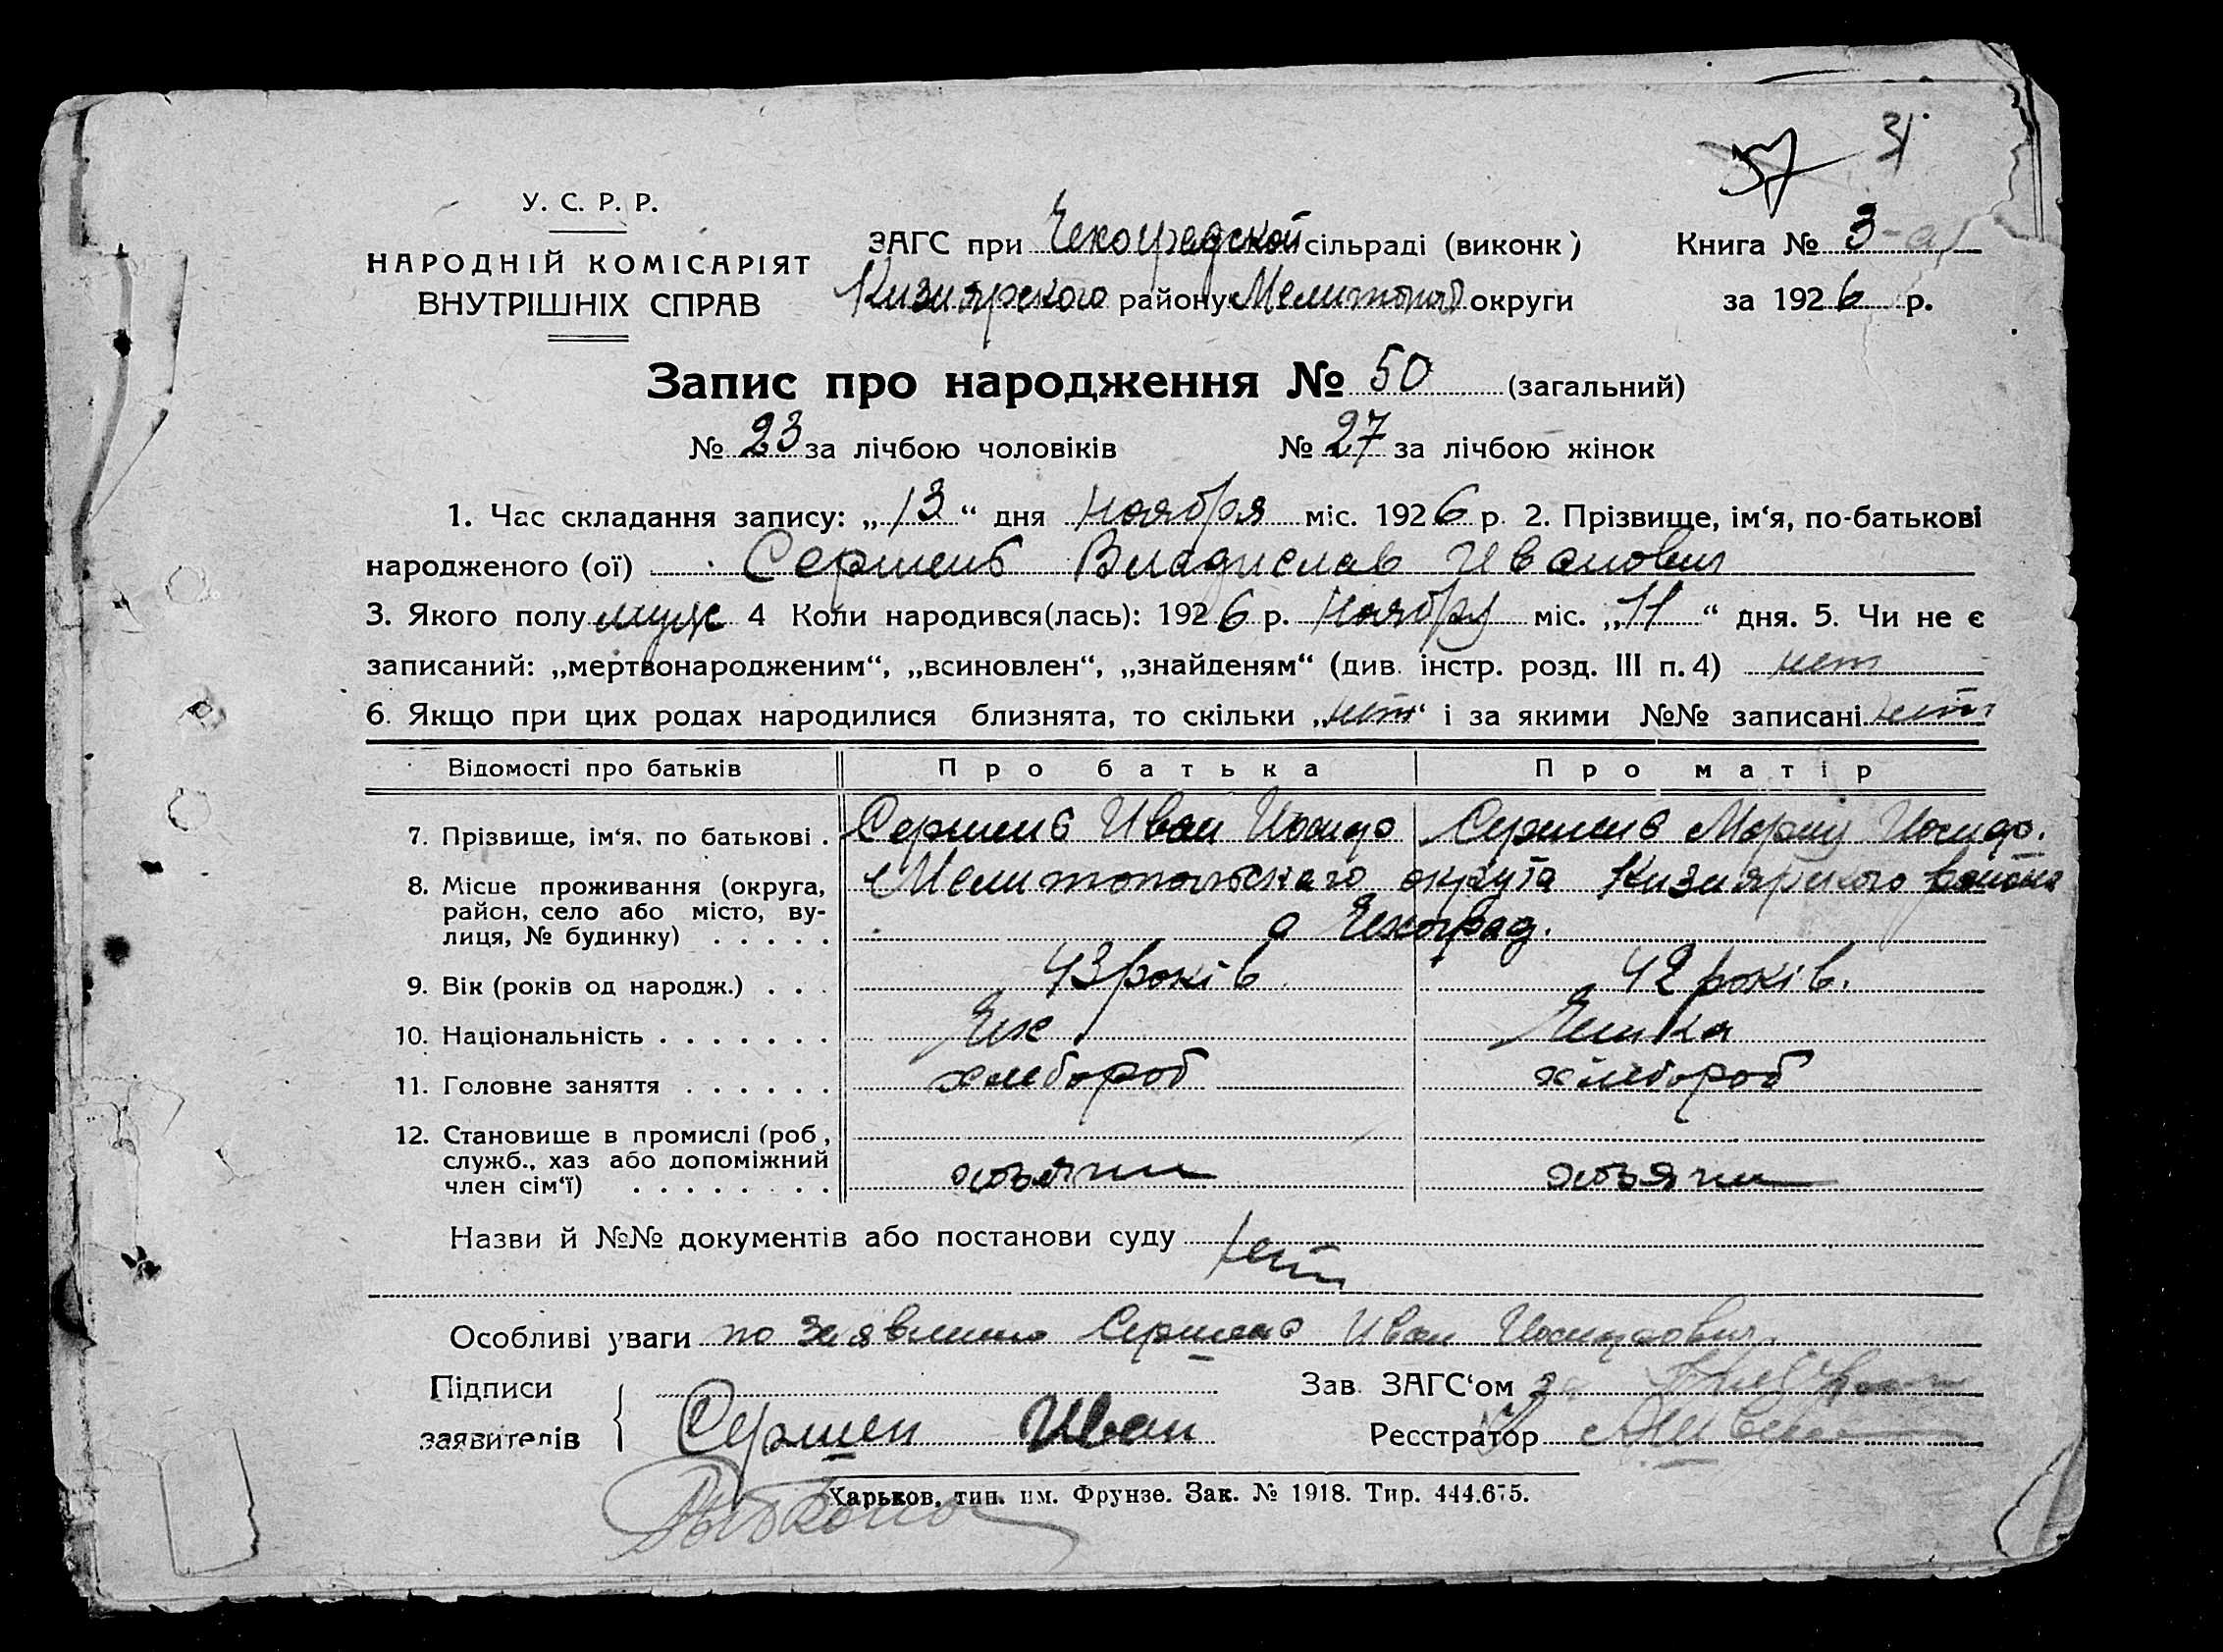 37 31
У. С. Р. Р.
НАРОДНІЙ КОМІСАРІЯТ
ВНУТРІШНІХ СПРАВ
ЗАГС при Чехоградской сільраді (виконк) Книга № 3-а
Кизиярского району Мелитопол округи за 1926 р.
Запис про народження № 50 (загальний)
№ 23 за лічбою чоловіків № 27 за лічбою жінок
1. Час складання запису: „13“ дня ноября міс. 1926 р. 2. Прізвище, ім‘я, по-батькові
народженого (ої) Сершень Владислав Иванович
3. Якого полу муж 4 Коли народився(лась): 1926 р. ноября міс. „11“ дня. 5. Чи не є
записаний: „мертвонародженим“, „всиновлен“, „знайденям“ (див. інстр. розд. III п. 4) нет
6. Якщо при цих родах народилися близнята, то скільки „нет“ і за якими №№ записані нет
Відомості про батьків Про батька Про матір
7. Прізвище, ім‘я, по батькові . Сершень Иван Иосифо Сершень Марию Иосифо.
8. Місце проживання (округа, Мелитопольскаго округа Кизиярского района
район, село або місто, ву-
лиця, № будинку) . . . . . с Чехоград.
9. Вік (років од народж.) . . . 43 років 42 років.
10. Національність . . . . . . . Чех Чешка
11. Головне заняття . . . . . . хлебороб хлебороб
12. Становище в промислі (роб,
служб., хаз або допоміжний
член сім‘ї) . . . . . . . .
Назви й №№ документів або постанови суду нет
Особливі уваги по заявлению Сершень Иван Иосифович
Підписи Зав. ЗАГС‘ом
заявителів Сершен Иван Ресстратор
Харьков, тип. им. Фрунзе. Зак. № 1918. Тир. 444.675.